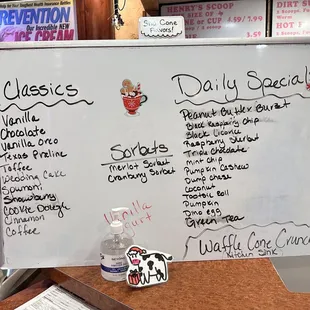 PREVENTION
Our Incredible New
ICE CREAM
Sno Cone
Flavors!
HENRY'S SCOOP
DIRT SU
Classics
Vanilla
Chocolate
Vanilla Oreo
Texas Pineline
Toffee
Wedding Cake
Spumoni
Strawberry
Cookie Dough
Cinnamon
Coffee
Sorbets
Merlot Sorbet
Cranberry Sorbet
Vanilla
Daily Special
Peanut Butter Burst
Black Raspberry Chip
Black Licorice
Raspberry Sherbut
Triple Chocolate
Mint Chip
Pumpkin Cashew
Dump Chase
Coconut
Tootsie Roll
Pumpkin
Dino egg
Green Tea
Waffle Cone Crunch
Kitchen Sink